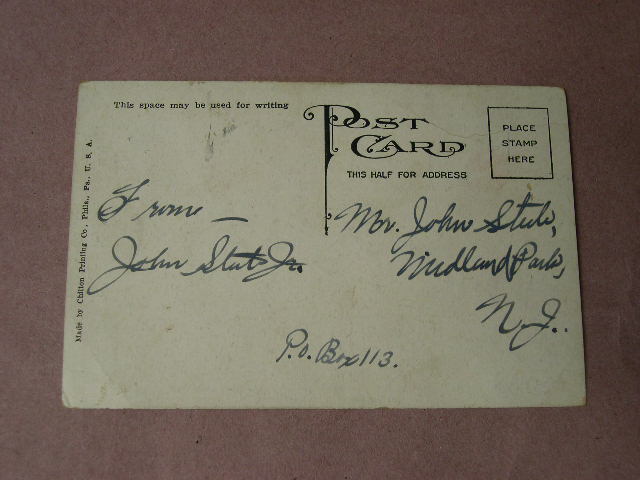 This space may be used for writing
POST CARD
THIS HALF FOR ADDRESS
PLACE
STAMP
HERE
Made by Chilton Printing Co., Phila., Pa., U. S. A.
From —
John Jr.
Mr. John
Midland Park,
N.J..
P.O. Box 113.